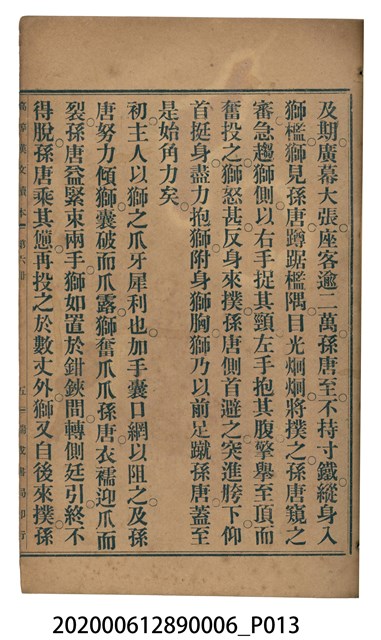 及期廣幕大張座客逾二萬孫唐至不持寸鐵縱身入
獅檻獅見孫唐蹲踞檻隅目光炯炯將撲之孫唐窺之
審急趨獅側以右手捉其頸左手抱其腹擎舉至頂而
奮投之獅怒甚反身來撲孫唐側首避之突進膀下仰
首挺身盡力抱獅附身獅胸獅乃以前足蹴孫唐蓋至
是始角力矣
初主人以獅之爪牙犀利也加手囊口網以阻之及孫
唐努力傾獅囊破而爪露獅奮爪爪孫唐衣襦迎爪而
裂孫唐益緊束兩手獅如置於鉗鋏間轉側廷引終不
得脫孫唐乘其憊再投之於數丈外獅又自後來撲孫
高等漢文讀本 第六
202000612890006_P013